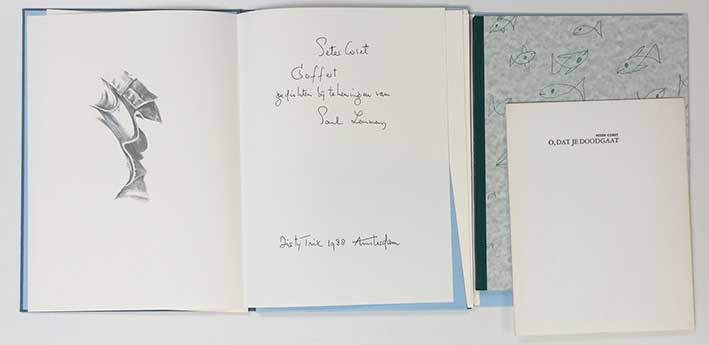 Peter Coret
Coffert
gedichten bij tekeningen van
Paul
Dirty Trix 1988 Amsterdam
PETER CORET
O, DAT JE DOODGAAT